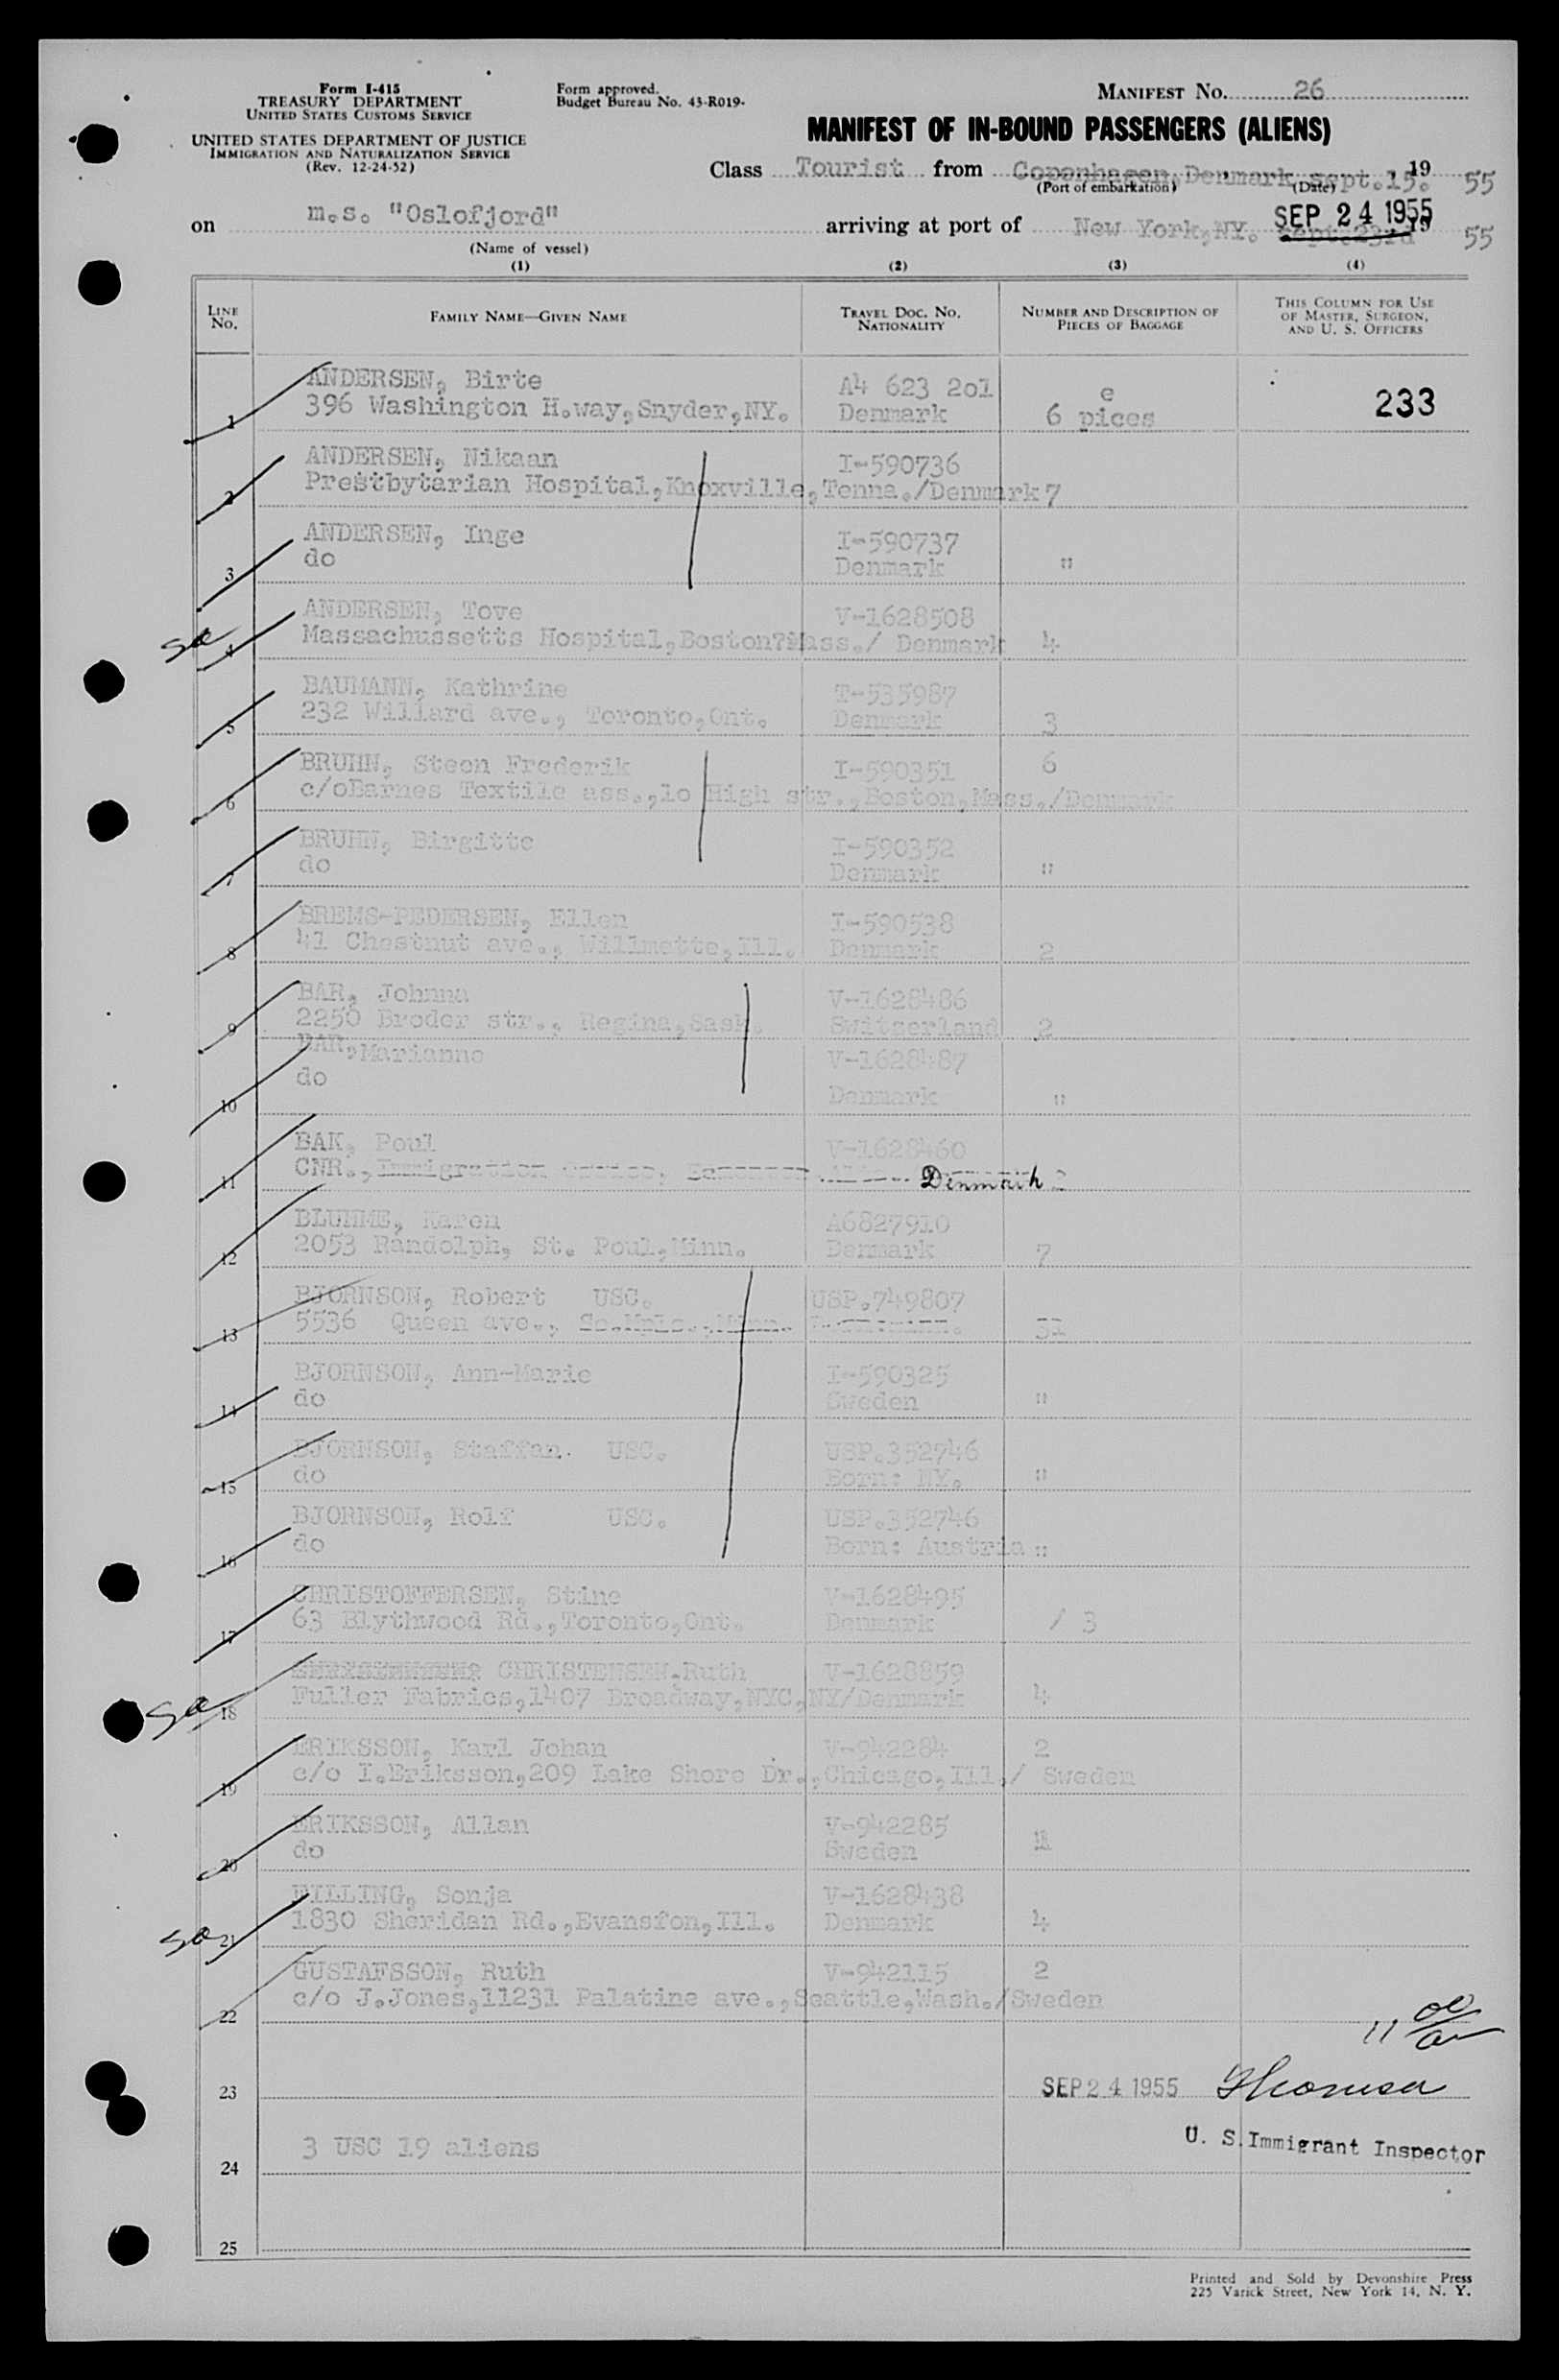 Form I-415
TREASURY DEPARTMENT
UNITED STATES CUSTOMS SERVICE
UNITED STATES DEPARTMENT OF JUSTICE
IMMIGRATION AND NATURALIZATION SERVICE
(Rev. 12-24-52)
Form approved.
Budget Bureau No. 43-R019-
MANIFEST No. 26
MANIFEST OF IN-BOUND PASSENGERS (ALIENS)
Class Tourist from Copenhagen, Denmark sept.15. , 19 55
(Port of embarkation) (Date)
on m.s. "Oslofjord" arriving at port of New York,NY. sept.23rd SEP 24 1955 19 55
(Name of vessel)
(1) (2) (3) (4)
LINE No. FAMILY NAME—GIVEN NAME TRAVEL DOC. NO. NATIONALITY NUMBER AND DESCRIPTION OF PIECES OF BAGGAGE THIS COLUMN FOR USE OF MASTER, SURGEON, AND U. S. OFFICERS
1 ANDERSEN, Birte A4 623 2o1 e 233
396 Washington H.way,Snyder,NY. Denmark 6 pices
2 ANDERSEN, Nikaan I-590736
Prestbytarian Hospital,Knoxville,Tenna./Denmark 7
3 ANDERSEN, Inge I-590737
do Denmark "
sa 4 ANDERSEN, Tove V-1628508
Massachussetts Hospital,Boston?Mass./ Denmark 4
5 BAUMANN, Kathrine T-535987
232 Willard ave., Toronto,Ont. Denmark 3
6 BRUHN, Steen Frederik I-590351 6
c/oBarnes Textile ass.,1o High str.,Boston,Mass./Denmark
7 BRUHN, Birgitte I-590352
do Denmark "
8 BREMS-PEDERSEN, Ellen I-590538
41 Chestnut ave., Willmette,Ill. Denmark 2
9 BAR, Johnna V-1628486
2250 Broder str., Regina,Sask. Switzerland 2
10 BAR,Marianne V-1628487
do Denmark "
11 BAK, Poul V-1628460
CNR., Immigration Denmark
12 BLUHME, Karen A6827910
2053 Randolph, St. Poul,Minn. Denmark 7
13 BJORNSON, Robert USC. USP.749807
5536 Queen ave., So.Mpls.,Minn.
14 BJORNSON, Ann-Marie I-590325
do Sweden "
15 BJORNSON, Staffan. USC. USP.352746
do Born: NY. "
16 BJORNSON, Rolf USC. USP.352746
do Born: Austria "
17 CHRISTOFFERSEN, Stine V-1628495
63 Blythwood Rd.,Toronto,Ont. Denmark / 3
sa 18 CHRISTENSEN.Ruth V-1628859
Fuller Fabrics,1407 Broadway,NYC,NY/Denmark 4
19 ERIKSSON, Karl Johan V-942284 2
c/o I.Eriksson,209 Lake Shore Dr.,Chicago,Ill./ Sweden
20 ERIKSSON, Allan V-942285
do Sweden "
sa 21 EILLING, Sonja V-1628438
1830 Sheridan Rd.,Evansfon,Ill. Denmark 4
22 GUSTAFSSON, Ruth V-942115 2
c/o J.Jones,11231 Palatine ave.,Seattle,Wash./Sweden
11
23 SEP 24 1955
U. S. Immigrant Inspector
24 3 USC 19 aliens
25
Printed and Sold by Devonshire Press
225 Varick Street, New York 14, N. Y.